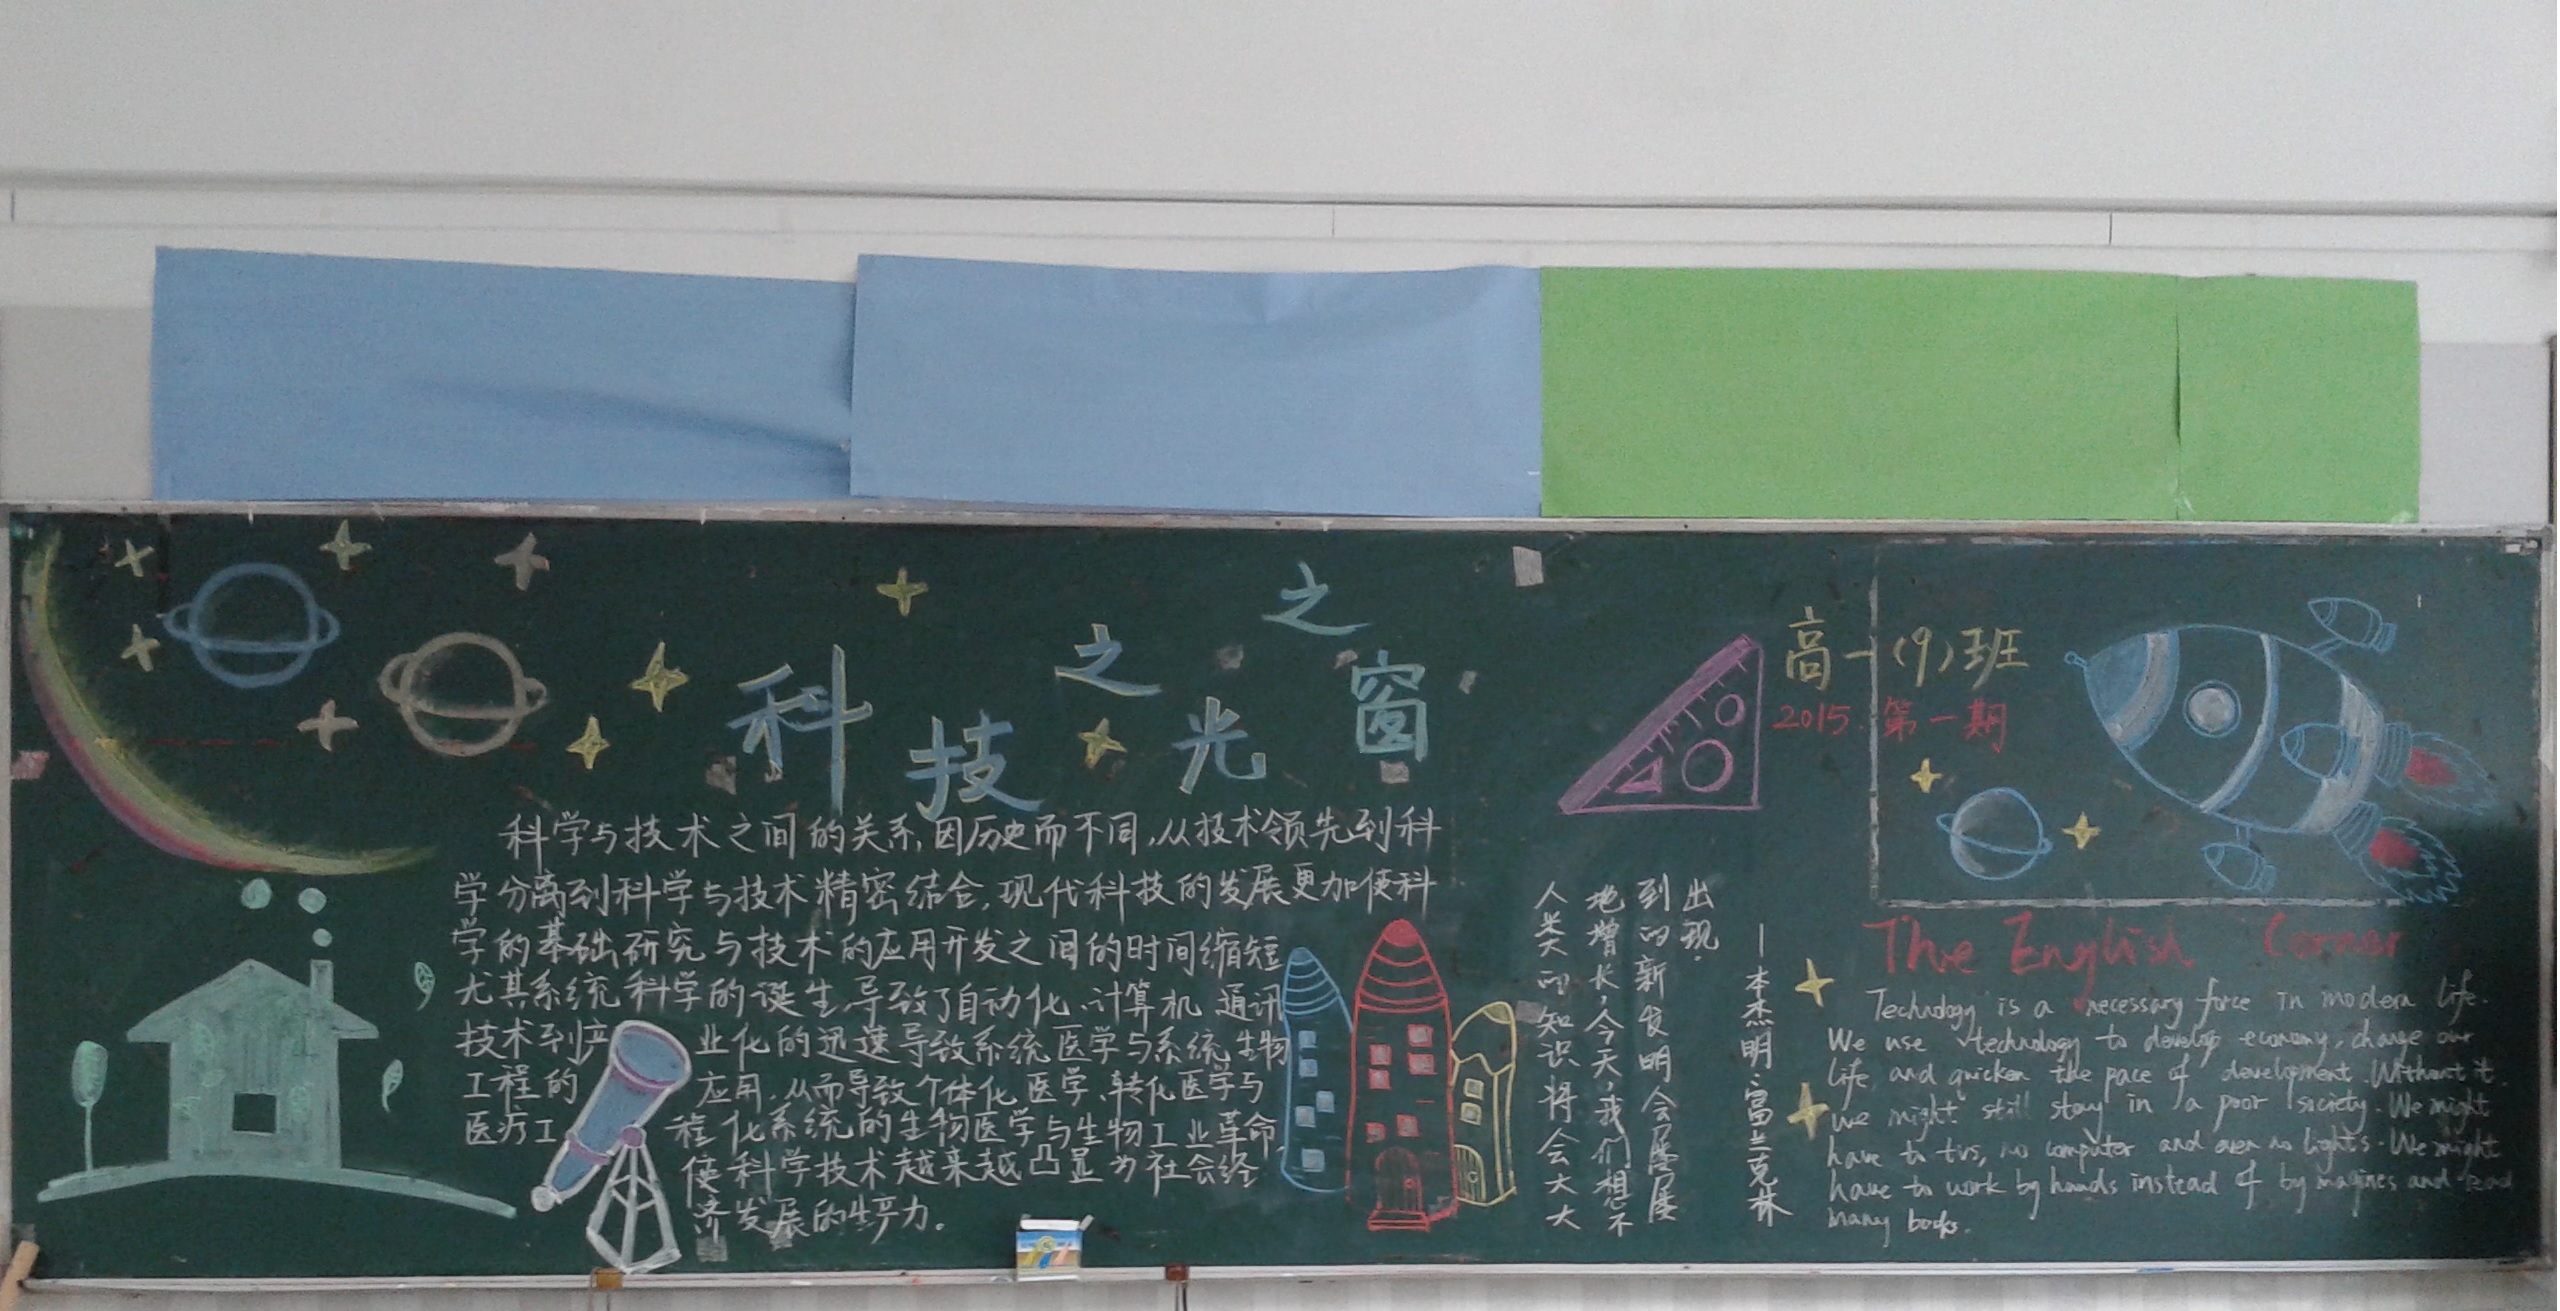 科技之光之窗
科学与技术之间的关系,因历史而不同,从技术领先到科
学分离到科学与技术精密结合,现代科技的发展更加使科
学的基础研究与技术的应用开发之间的时间缩短
尤其系统科学的诞生,导致了自动化、计算机 通讯
技术到产业化的迅速导致系统医学与系统生物
工程的应用,从而导致个体化医学、转化医学与
医疗工程化系统的生物医学与生物工业革命,
使科学技术越来越凸显为社会经
济发展的生产力。
人类的知识将会大大
地增长,今天,我们想不
到的新发明会屡屡
出现.
—本杰明·富兰克林
高一(9)班
2015.第一期
The English Corner
Technology is a necessary force in modern life.
We use technology to develop economy, change our
life and quicken the pace of development. Without it
we might still stay in a poor society. We might
have to tvs, no computer and even no lights. We might
have to work by hands instead of by magines and read
many books.